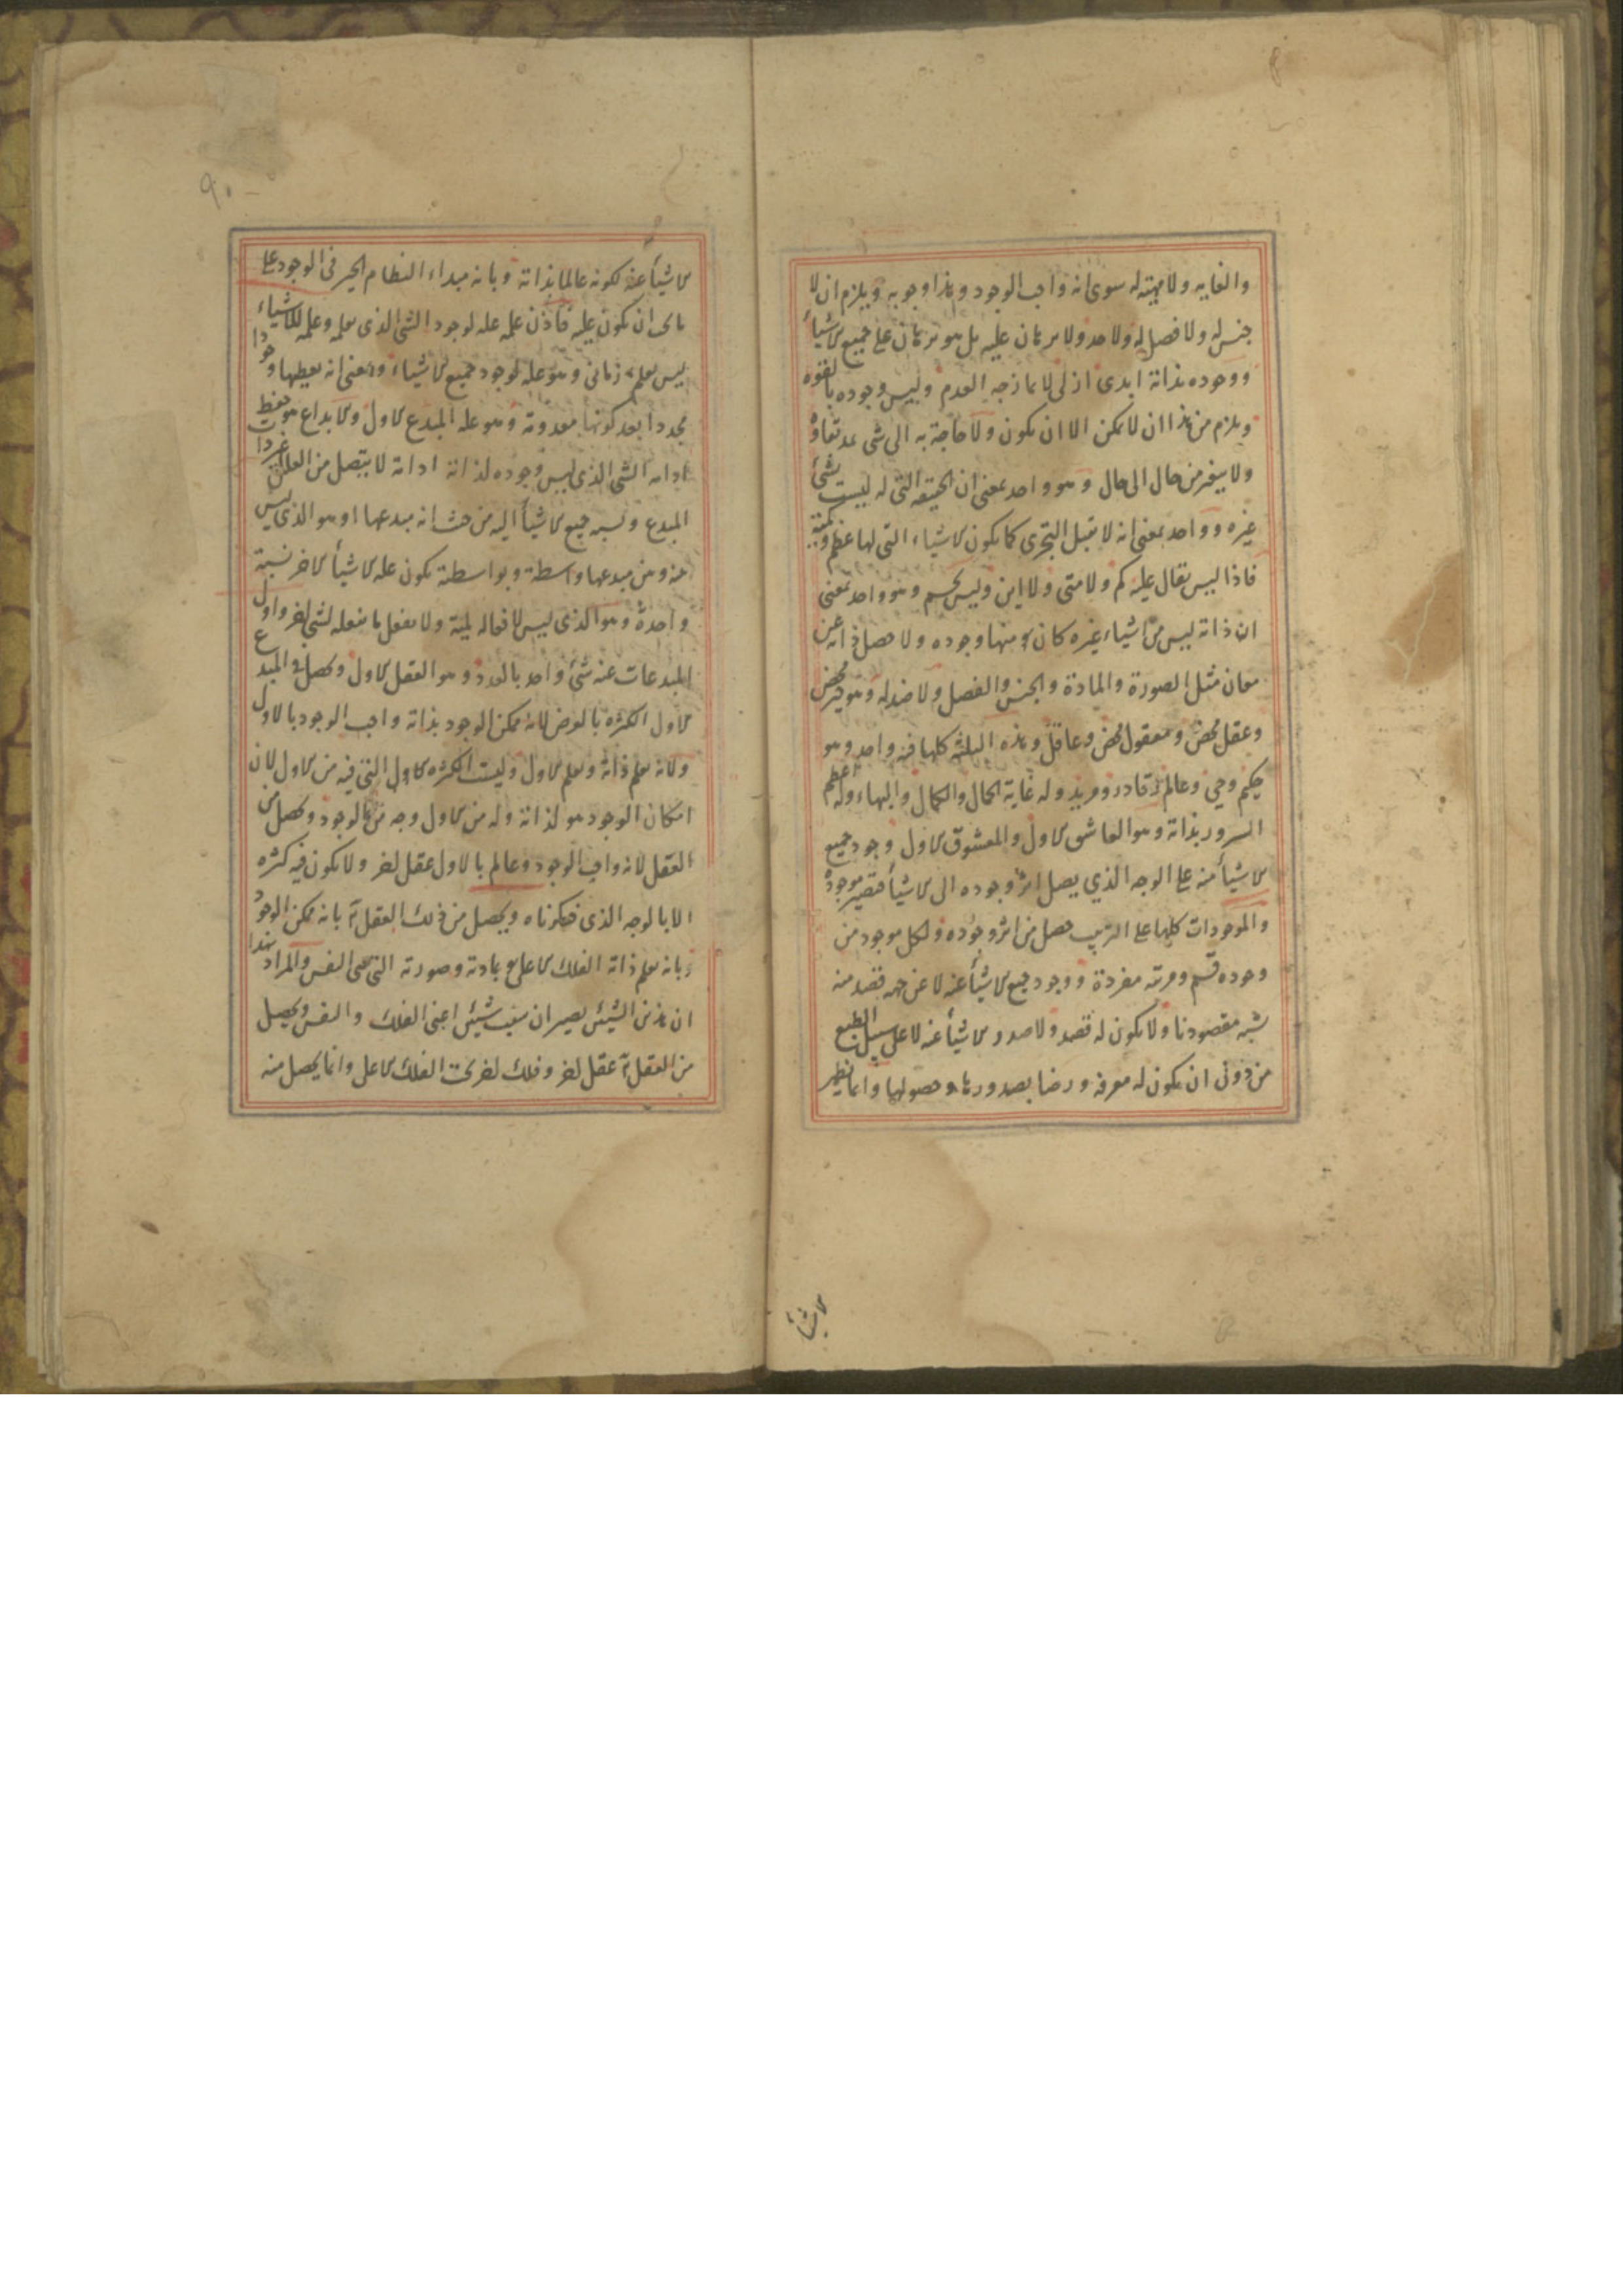 والغايه ولا مهية له سوى انه واجب الوجود وهذا وجوبه ويلزم ان لا
جنس له ولا فصل له ولا حد ولا برهان عليه بل هو برهان على جميع الاشيأ
ووجوده بذاته ابدى ازلى لا يمازجه العدم وليس وجوده بالقوه
ويلزم من هذا ان لا يمكن الا ان يكون ولا حاجة به الى شى يمد بقاؤه
ولا يتغير من حال الى حال وهو واحد بمعنى ان الحقيقه التى له ليست لشئ
غيره وواحد بمعنى انه لا يقبل التجزى كما يكون الاشياء التى لها عظم وكمية
فاذا ليس يقال عليه كم ولا متى ولا اين وليس بجسم وهو واحد بمعنى
ان ذاته ليس من اشياء غيره كان منها وجوده ولا حصل ذاته عن
معان مثل الصورة والمادة والجنس والفصل ولا ضد له وهو خير محض
وعقل محض ومعقول محض وعاقل وهذه الثلثه كلها فيه واحد وهو
حكيم وحى وعالم وقادر ومريد وله غاية الجمال والكمال والبهاء وله اعظم
السرور بذاته وهو العاشق الاول والمعشوق الاول ووجود جميع
الاشيأ منه على الوجه الذي يصل اثر وجوده الى الاشيأ فتصير موجودة
والموجودات كلها على الترتيب حصل من اثر وجوده ولكل موجود من
وجوده قسم ومرتبه مفردة ووجود جميع الاشيأ عنه لا عن جهه قصد منه
يشبه مقصودنا ولا يكون له قصد ولا صدور الاشيأ عنه لا على سبيل الطبع
من دون ان يكون له معرفه ورضا بصدورها وحصولها وانما يظهر
الاشيأ
٩٠
الاشيأ عنه لكونه عالما بذاته وبانه مبداء النظام الخير فى الوجود على
ما يجب ان يكون عليه فاذن علمه عله لوجود الشى الذى يعلمه وعلمه للاشياء
ليس بعلم زمانى وهو عله لوجود جميع الاشياء ومعنى انه يعطيها وجودا
مجددا بعد كونها معدومة وهو عله المبدع الاول والابداع هو حفظ
ادامه الشى الذى ليس وجوده لذاته ادامة لا يتصل من العلل غير ذات
المبدع ونسبه جميع الاشيأ اليه من حيث انه مبدعها او هو الذى ليس
بينه وبين مبدعها واسطة وبواسطة يكون عله الاشيأ الاخر نسبة
واحدة وهو الذى ليس لافعاله لمية ولا يفعل ما يفعله لشى اخر واول
المبدعات عنه شئ واحد بالعدد وهو العقل الاول وحصل فى المبدع
الاول الكثره بالعرض لانه ممكن الوجود بذاته واجب الوجود بالاول
ولانه يعلم ذاته ويعلم الاول وليست الكثره التى فيه من الاول لان
امكان الوجود هو لذاته وله من الاول وجه من الوجود وحصل من
العقل لانه واجب الوجود وعالم بالاول عقل اخر ولا يكون فيه كثره
الا بالوجه الذى ذكرناه ويحصل من ذلك العقل بانه ممكن الوجود
وبانه يعلم ذاته الفلك الاعلى بمادته وصورته التى هى النفس والمراد بهذا
ان هذين الشيئين يصيران سبب شيئين اعنى الفلك والنفس ويحصل
من العقل عقل اخر وفلك اخر تحت الفلك الاعلى وانما يحصل منه